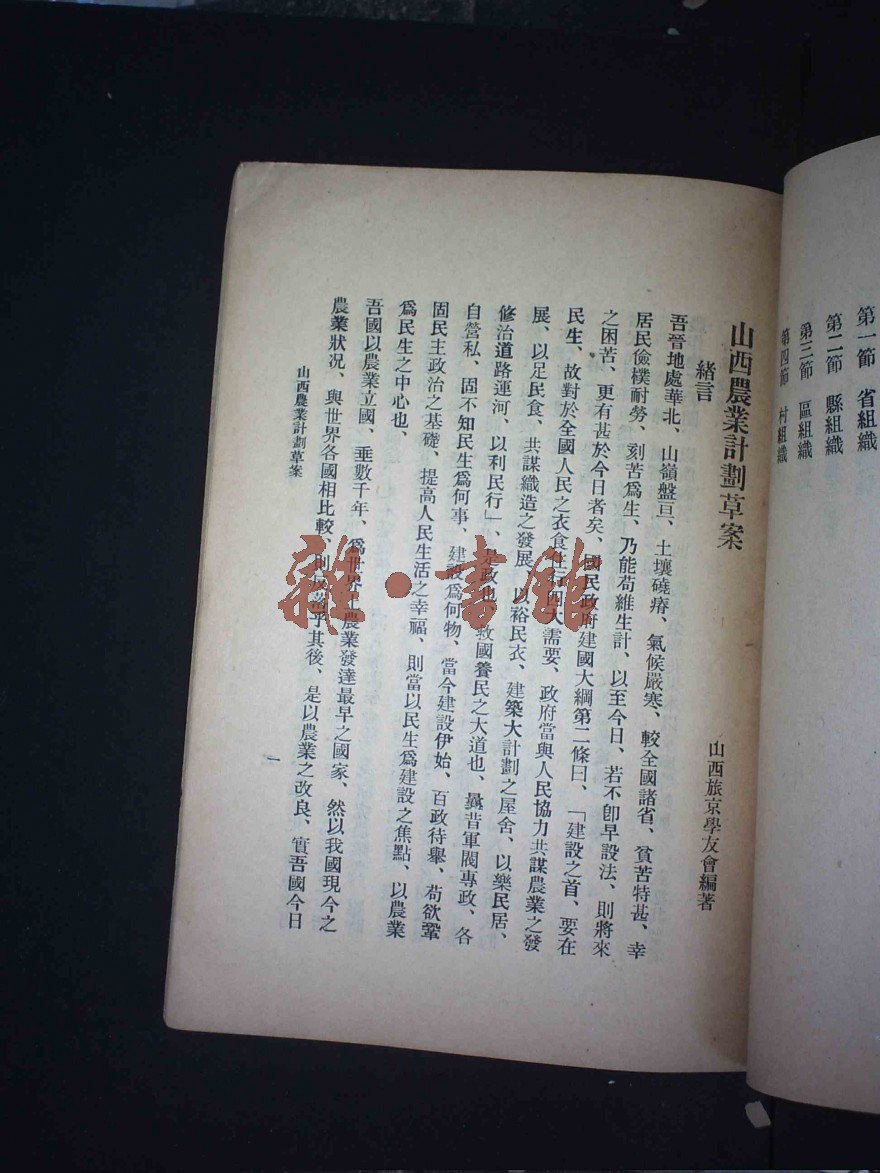 第一節　省組織
第二節　縣組織
第三節　區組織
第四節　村組織
山西農業計劃草案
山西旅京學友會編著
緒言
吾晉地處華北、山嶺盤亘、土壤磽瘠、氣候嚴寒、較全國諸省、貧苦特甚、幸
居民儉樸耐勞、刻苦爲生、乃能苟維生計、以至今日、若不卽早設法、則將來
之困苦、更有甚於今日者矣、國民政府建國大綱第二條曰、「建設之首、要在
民生、故對於全國人民之衣食住行四大需要、政府當與人民協力共謀農業之發
展、以足民食、共謀織造之發展、以裕民衣、建築大計劃之屋舍、以樂民居、
修治道路運河、以利民行」、是政也、救國養民之大道也、曩昔軍閥專政、各
自營私、固不知民生爲何事、建設爲何物、當今建設伊始、百政待舉、苟欲鞏
固民主政治之基礎、提高人民生活之幸福、則當以民生爲建設之焦點、以農業
爲民生之中心也、
吾國以農業立國、垂數千年、爲世界上農業發達最早之國家、然以我國現今之
農業狀況、與世界各國相比較、則反落乎其後、是以農業之改良、實吾國今日
山西農業計劃草案
一
雜·書館